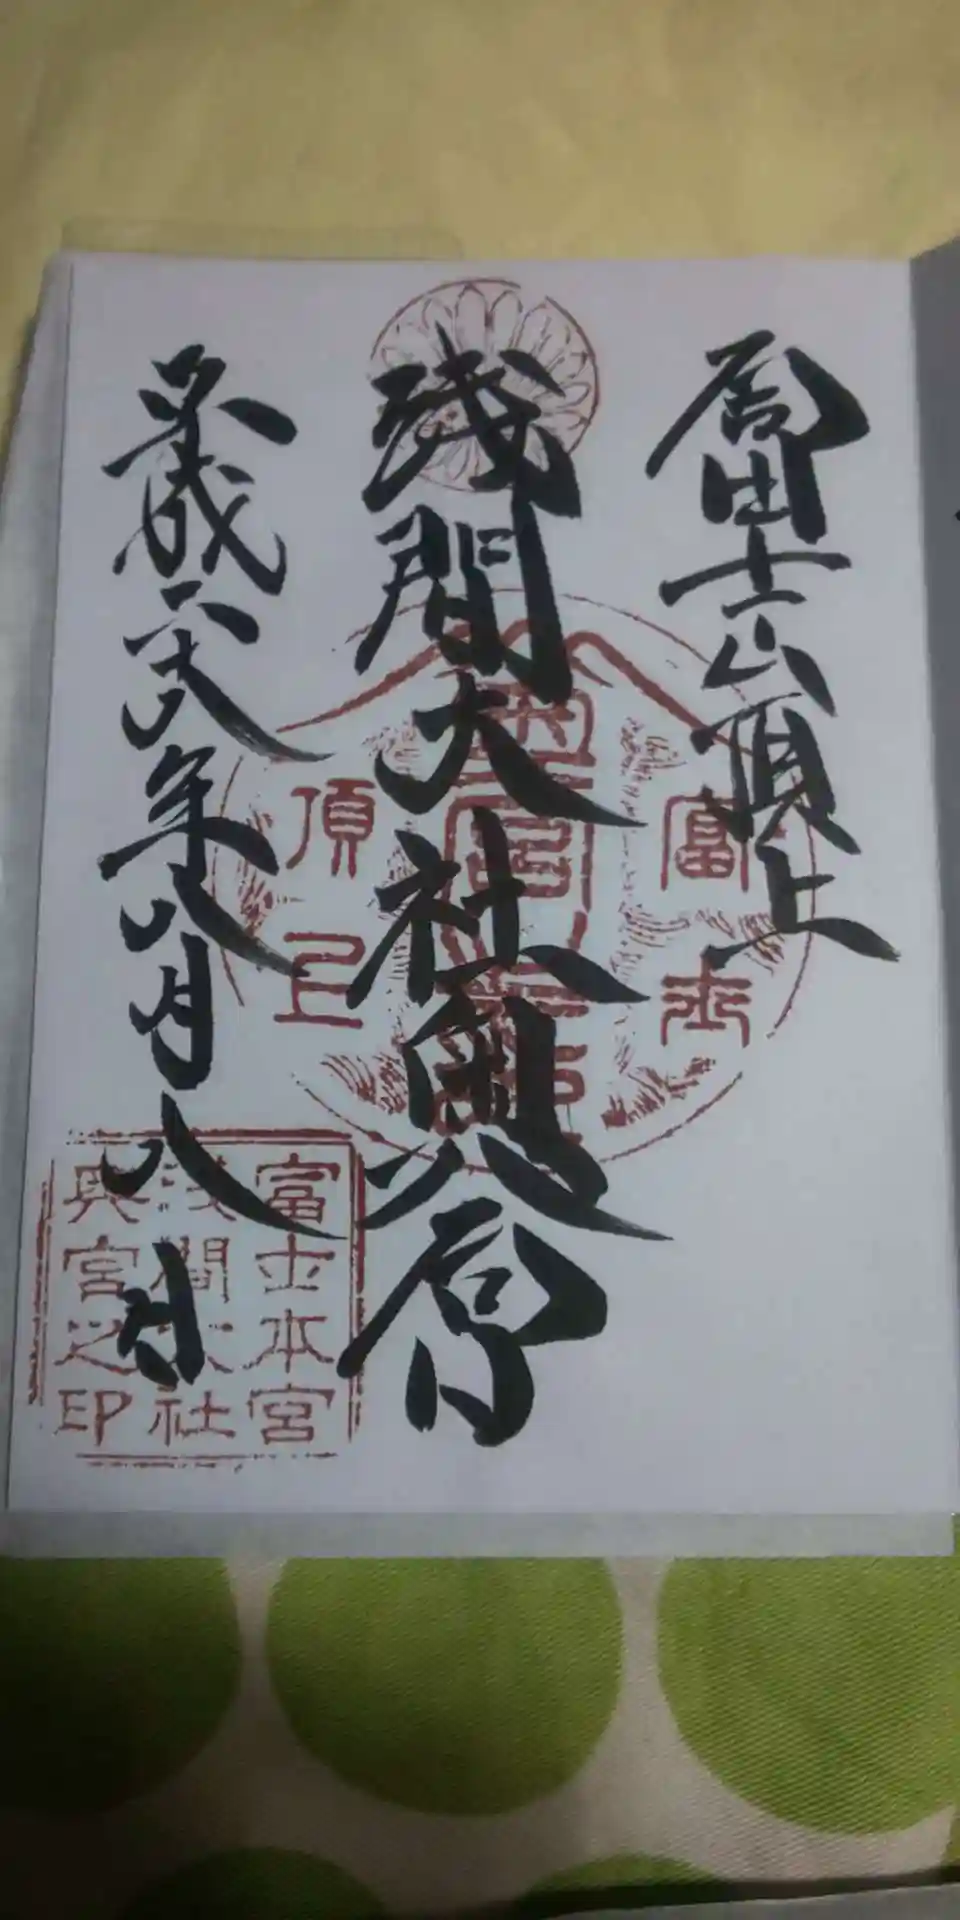 富士山頂上
浅間大社奥宮
平成二十八年八月八日
富士
頂上
富士本宮
浅間大社
奥宮之印